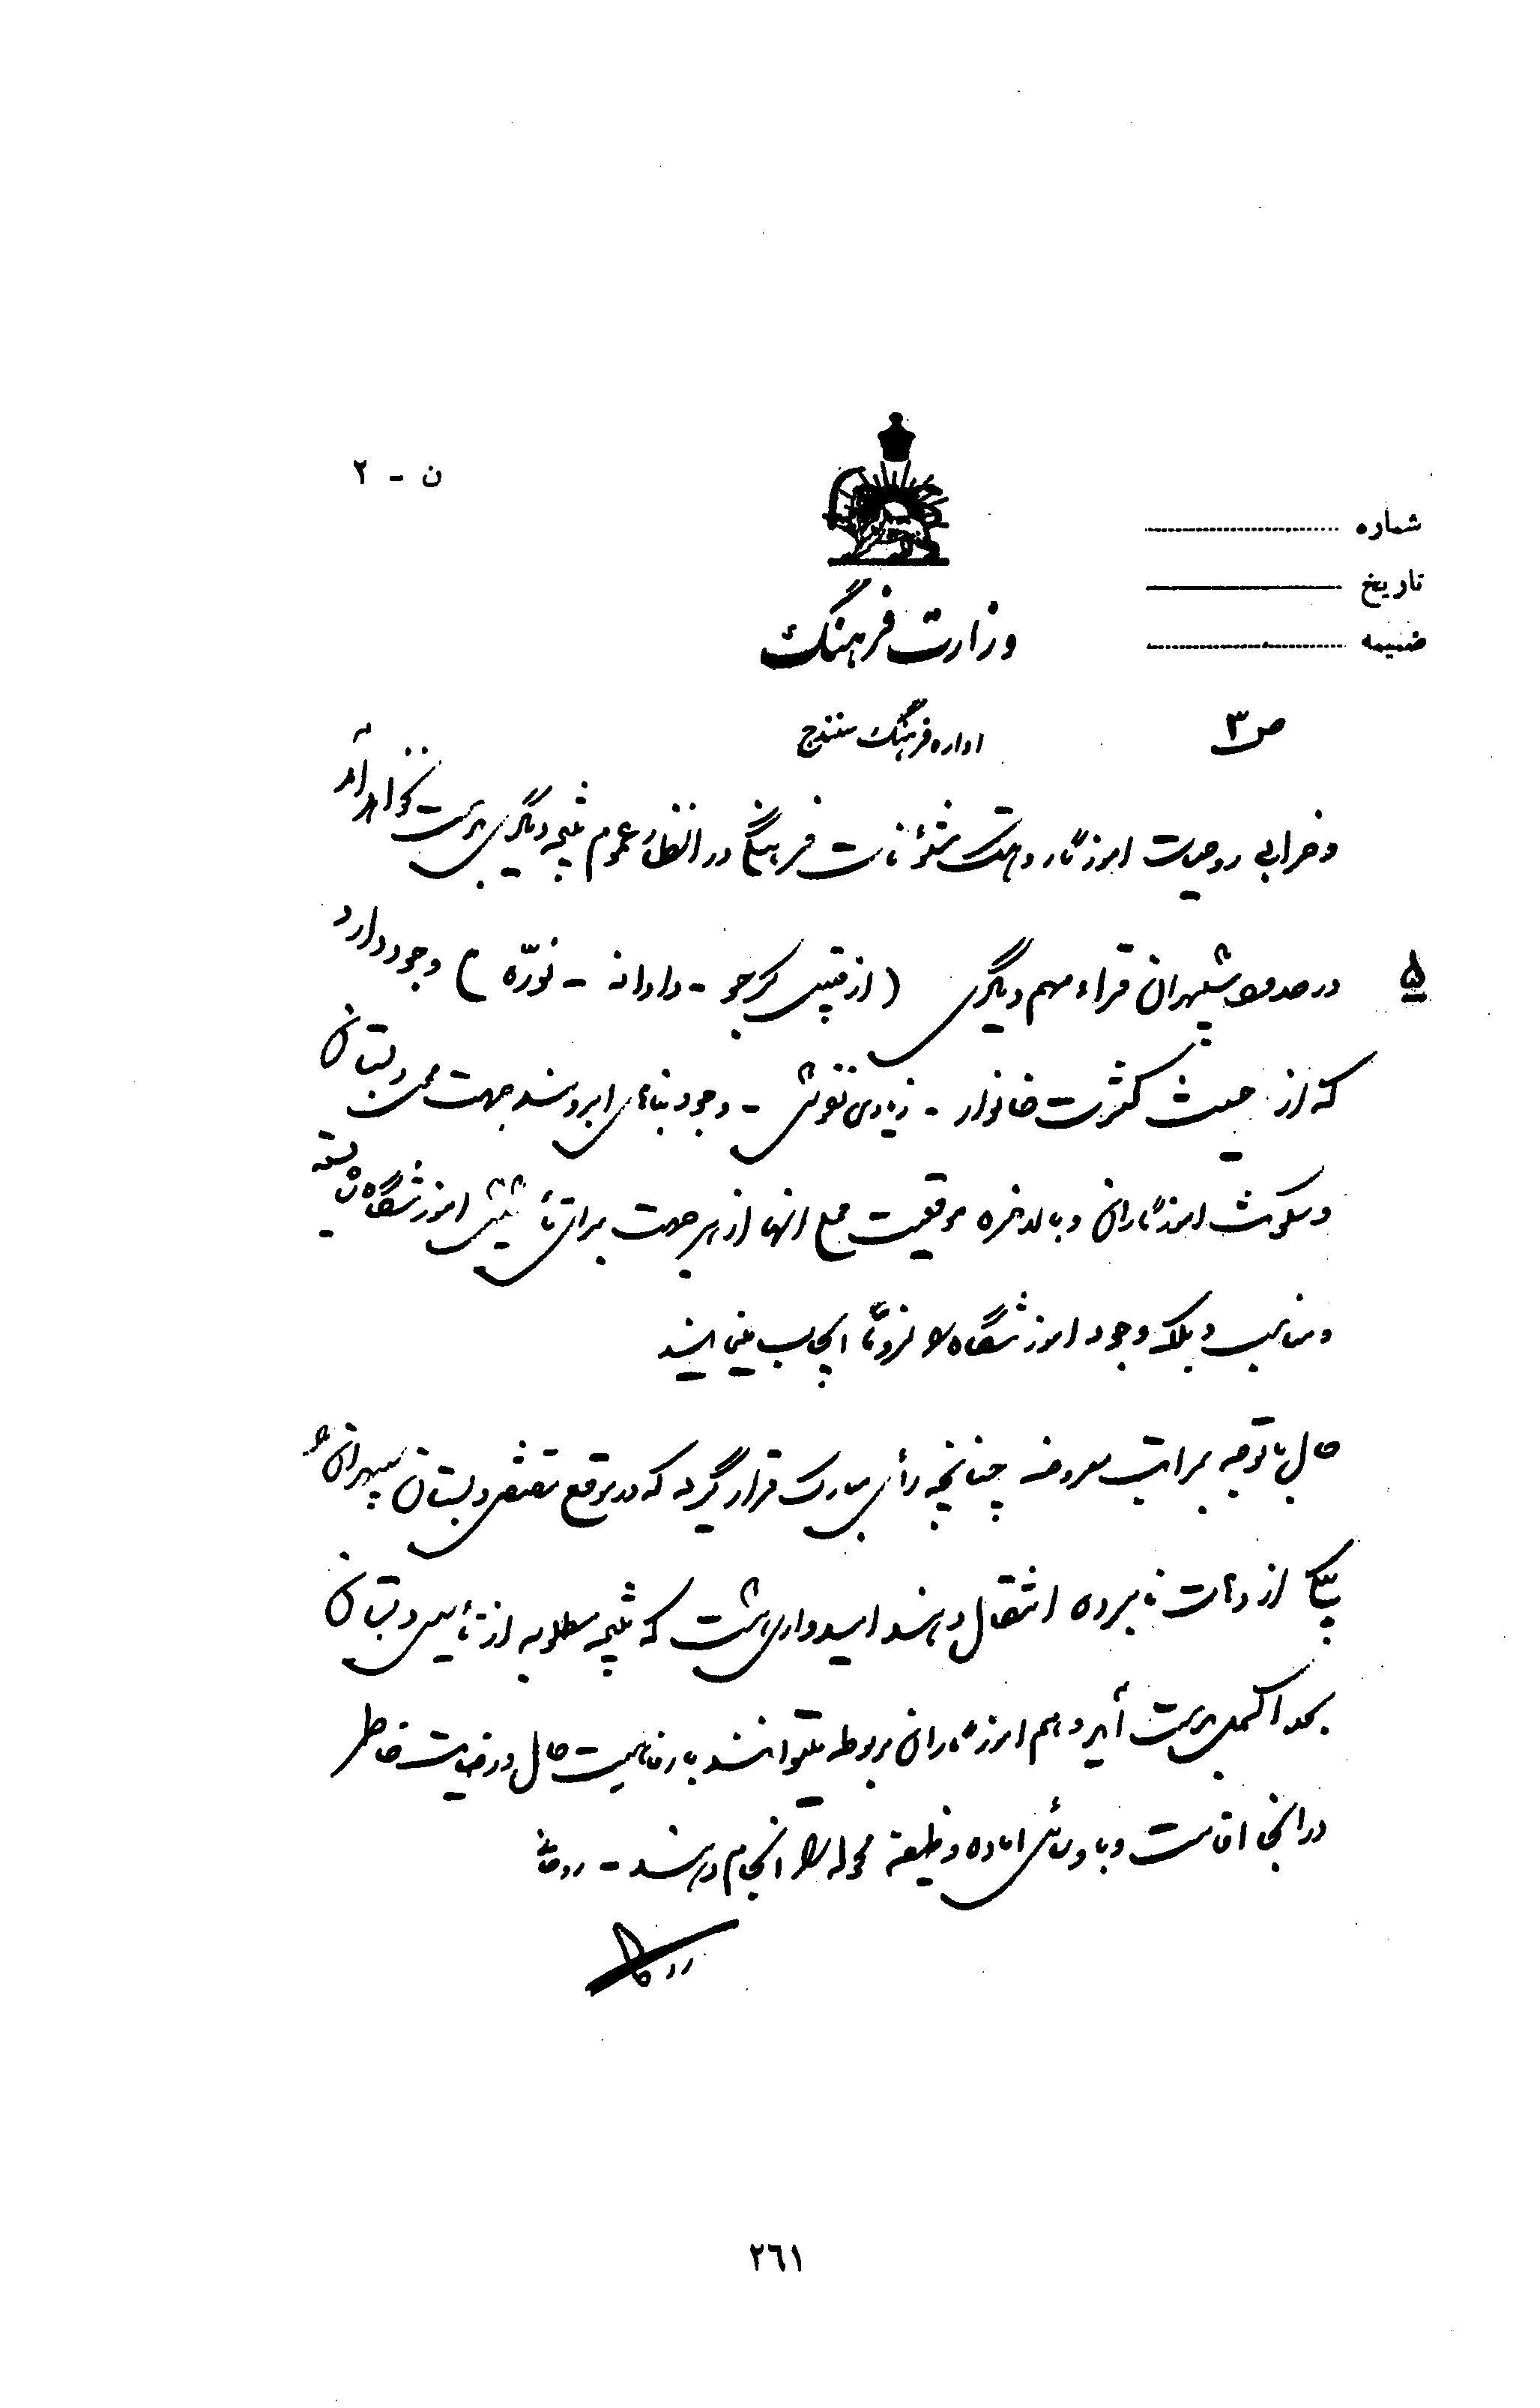 ن - ۲
شماره
تاریخ
ضمیمه
وزارت فرهنگ
اداره فرهنگ سنندج
ص ۳
و خرابی روحیات اموزگار و هتک شئونات فرهنگی در انظار عموم نتیجه دیگری بدست نخواهد آمد
۵ در حدود شیهران قراء مهم دیگری (از قبیل کرجو - دادانه - نورّه) وجود دارد
که از حیث کثرت خانوار - زیادی نفوس - وجود بناهای ابرومند جهت محل دبستان
و سکونت اموزگاران و بالاخره موقعیت محلی انها از هر جهت برای تأسیس اموزشگاه شایسته
و مناسب و بلکه وجود اموزشگاه را لزوماً ایجاب مینمایند
حال با توجه بمراتب معروضه چنانچه رأی مبارک قرار گیرد که در موقع مقتضی دبستان شیهران را
بیکی از دهات نامبرده انتقال دهند امیدواری هست که نتیجه مطلوبه از تأسیس دبستان
بحد اکمل بدست آید و هم اموزگاران مربوطه میتوانند با رفاهیت حال و رضایت خاطر
در انجا اقامت و با وسائل اماده وظیفه محوله را انجام دهند -
۲٦۱